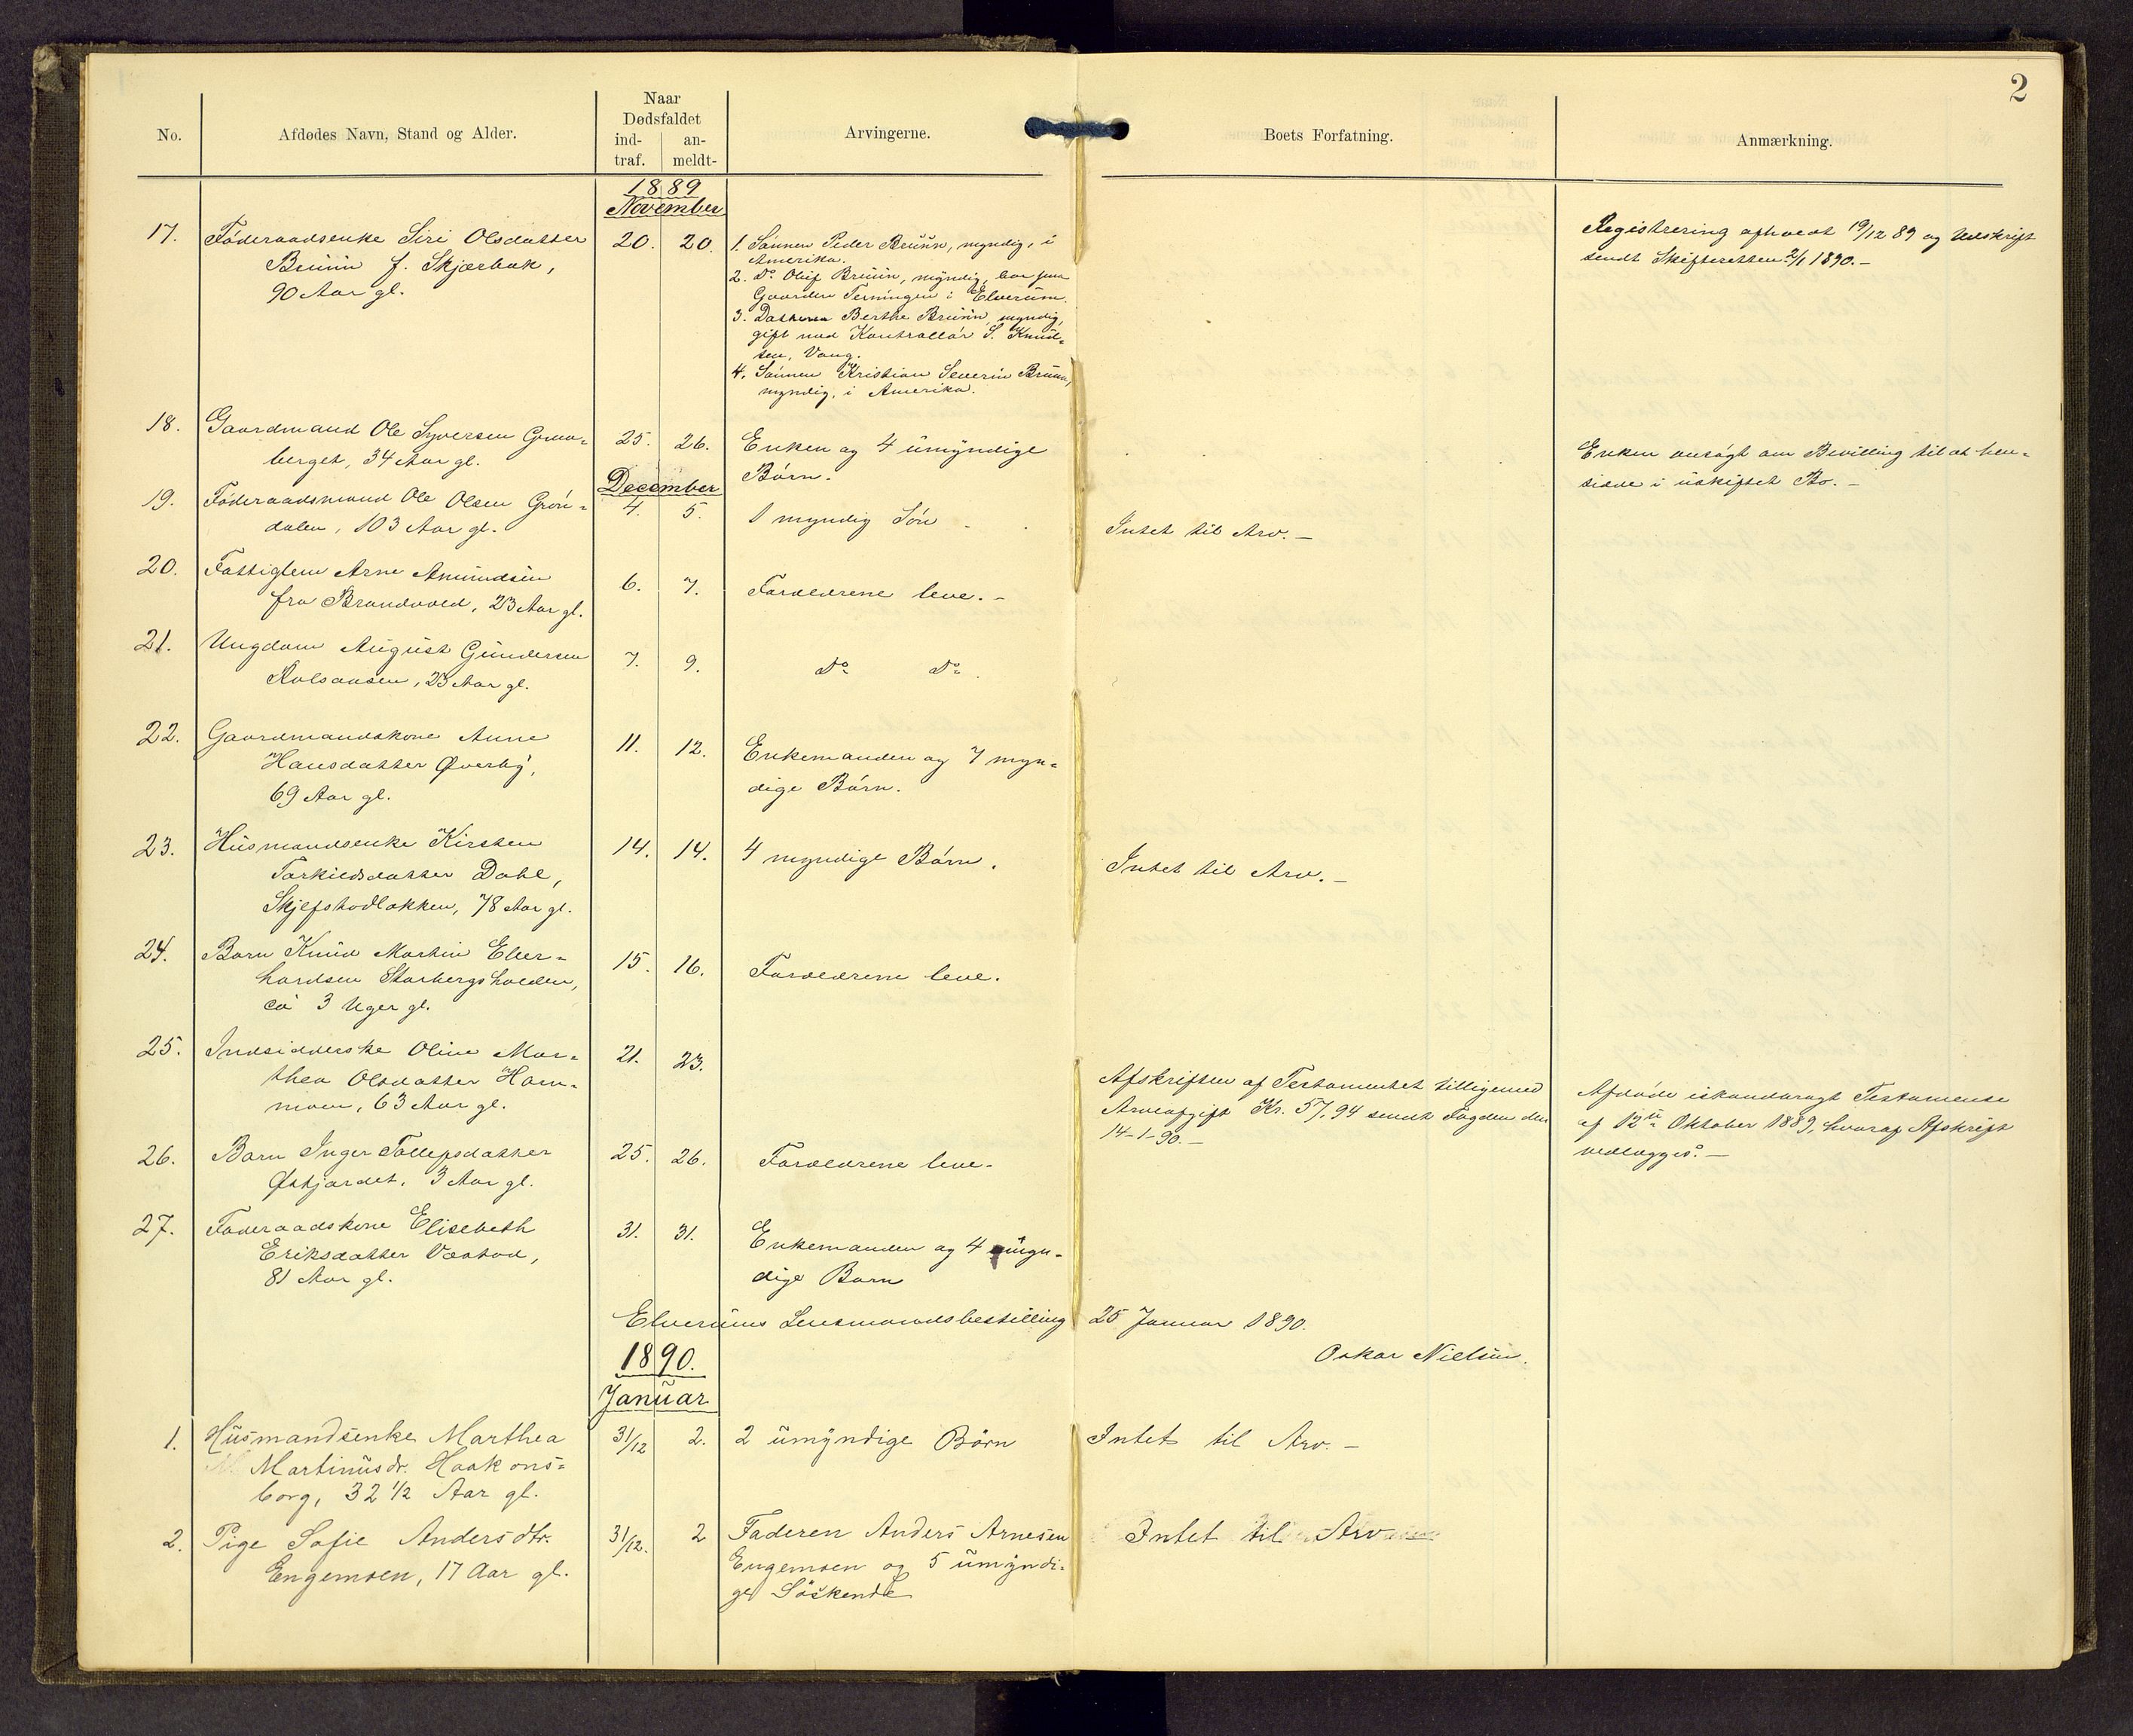 2
No.
Afdødes Navn, Stand og Alder.
Naar
Dødsfaldet
ind-
traf.
an-
meldt-
Arvingerne.
Boets Forfatning.
Anmærkning.
1889
November
17. Föderaadsenke Siri Olsdatter
Bruun f. Skjærbæk,
90 Aar gl.
20. 20.
1. Sönnen Peder Bruun, myndig, i
Amerika.
2. Do Oluf Bruun, myndig, bor paa
Gaarden Terningen i Elverum.
3. Datteren Berthe Bruun, myndig,
gift med Kontrollör S. Knud-
sen, Vang.
4. Sönnen Kristian Severin Bruun,
myndig, i Amerika.
Registrering afholdt 19/12 89 og Udskrift
sendt Skifteretten 2/1 1890.-
18. Gaardmand Ole Syversen
berget, 34 Aar gl.
25. 26.
Enken og 4 umyndige
Börn.
Enken ansögt om Bevilling til at hen-
sidde i uskiftet Bo.-
December
19. Föderaadsmand Ole Olsen Grön-
dalen, 103 Aar gl.
4. 5.
1 myndig Sön
Intet til Arv.-
20. Fattiglem Arne Amundsen
fra Brandvold, 23 Aar gl.
6. 7.
Forældrene leve.-
21. Ungdom August Gundersen
23 Aar gl.
7. 9.
Do Do
22. Gaardmandskone Anne
Hansdatter Øverby,
69 Aar gl.
11. 12.
Enkemanden og 7 myn-
dige Börn.
23. Husmandsenke Kirsten
Torkildsdatter Dahl,
Skjefstadlökken, 78 Aar gl.
14. 14.
4 myndige Börn.
Intet til Arv.-
24. Barn Knud Martin Eber-
hardsen Storbergsholen,
ca 3 Uger gl.
15. 16.
Forældrene leve.
25. Indsidderske Oline Mar-
thea Olsdatter Ham-
moen, 63 Aar gl.
21. 23.
Afskriften af Testamentet tilligemed
Arveafgift Kr. 57.94 sendt Fogden den
14-1-90.-
Afdöde Testamente
af 12te Oktober 1889, hvoraf Afskrift
vedlægges.-
26. Barn Inger Tollefsdatter
Østjordet, 3 Aar gl.
25. 26.
Forældrene leve.
27. Föderaadskone Elisebeth
Eriksdatter Væstad,
81 Aar gl.
31. 31.
Enkemanden og 4 myn-
dige Börn
Elverums Lensmandsbestilling 25 Januar 1890.
Oskar Nielsen.
1890.
Januar
1. Husmandsenke Marthea
Martinusdr. Haakons-
borg, 32 1/2 Aar gl.
31/12 2.
2 umyndige Börn
Intet til Arv.-
2. Pige Sofie Andersdtr.
Engemoen, 17 Aar gl.
31/12. 2
Faderen Anders Arnesen
Engemoen og 5 umyndi-
ge Söskende
Intet til Arv